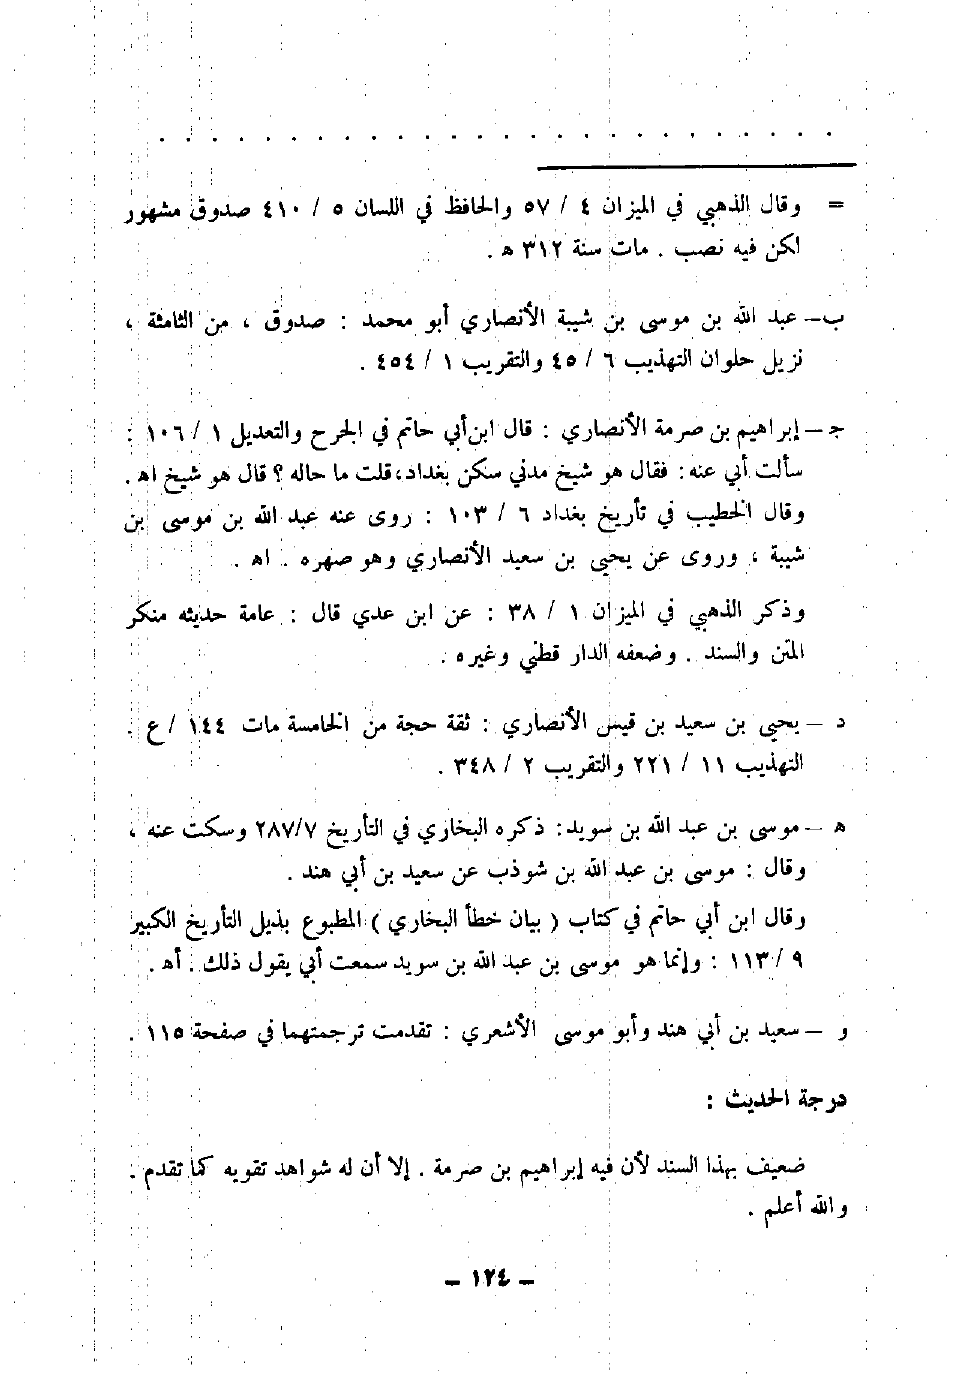 = وقال الذهبي في الميزان ٤ / ٥٧ والحافظ في اللسان ٥ / ٤١٠ صدوق مشهور
لكن فيه نصب . مات سنة ٣١٢ ه .
ب - عبد الله بن موسى بن شيبة الأنصاري أبو محمد : صدوق ، من الثامثة ،
نزيل حلوان التهذيب ٦ / ٤٥ والتقريب ١ / ٤٥٤ .
جـ - إبراهيم بن صرمة الأنصاري : قال ابن أبي حاتم في الجرح والتعديل ١ / ١٠٦ :
سألت أبي عنه : فقال هو شيخ مدني سكن بغداد، قلت ما حاله ؟ قال هو شيخ اه .
وقال الخطيب في تأريخ بغداد ٦ / ١٠٣ : روى عنه عبد الله بن موسى بن
شيبة ، وروى عن يحيى بن سعيد الأنصاري وهو صهره . اه .
وذكر الذهبي في الميزان ١ / ٣٨ : عن ابن عدي قال : عامة حديثه منكر
المتن والسند . وضعفه الدار قطني وغيره .
د - يحيى بن سعيد بن قيس الأنصاري : ثقة حجة من الخامسة مات ١٤٤ / ع .
التهذيب ١١ / ٢٢١ والتقريب ٢ / ٣٤٨ .
ه - موسى بن عبد الله بن سويد : ذكره البخاري في التأريخ ٢٨٧/٧ وسكت عنه ،
وقال : موسى بن عبد الله بن شوذب عن سعيد بن أبي هند .
وقال ابن أبي حاتم في كتاب ( بيان خطأ البخاري ) المطبوع بذيل التأريخ الكبير
٩ / ١١٣ : وإنما هو موسى بن عبد الله بن سويد سمعت أبي يقول ذلك . أه .
و - سعيد بن أبي هند وأبو موسى الأشعري : تقدمت ترجمتهما في صفحة ١١٥ .
درجة الحديث :
ضعيف بهذا السند لأن فيه إبراهيم بن صرمة . إلا أن له شواهد تقويه كما تقدم .
والله أعلم .
- ١٢٤ -